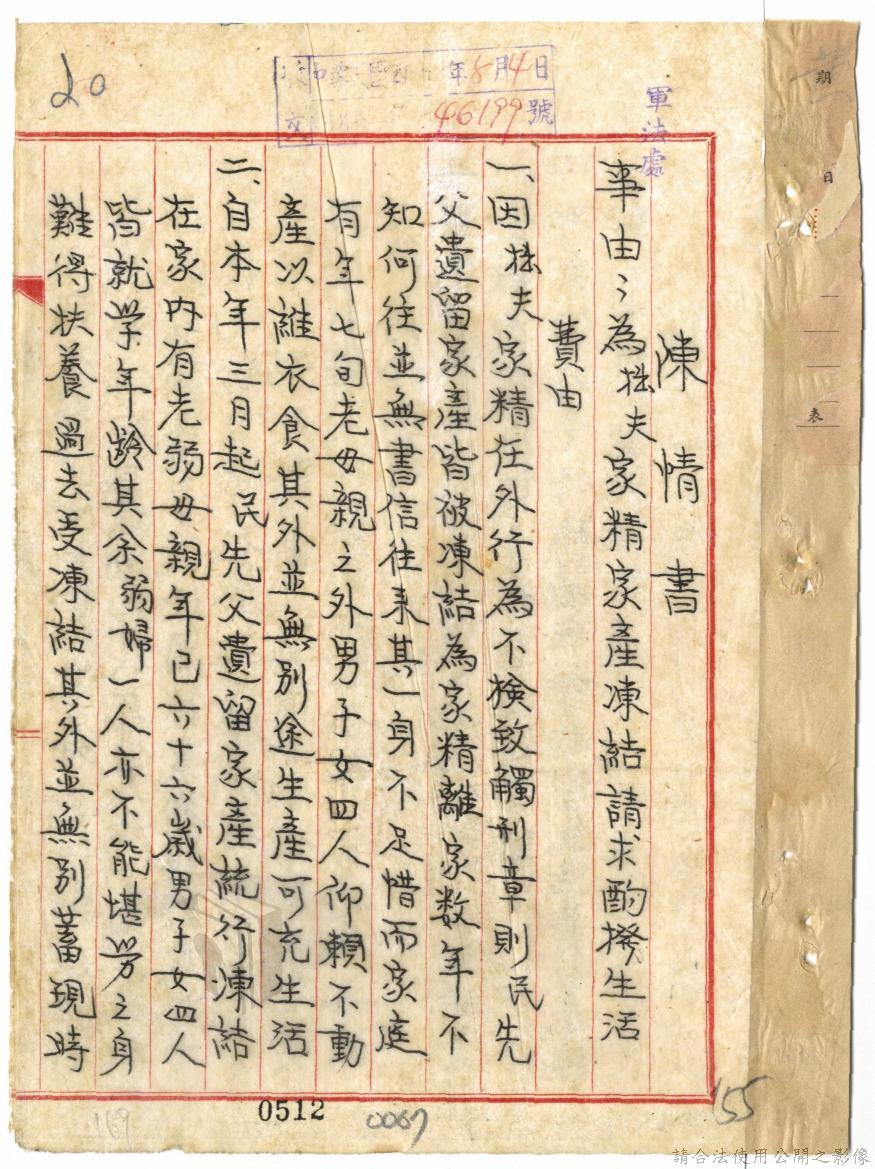 陳情書
事由:為拙夫家精家產凍結請求酌撥生活
費由
一、因拙夫家精在外行為不檢致觸刑章則民先
父遺留家產皆被凍結為家精離家数年不
知何往並無書信往來其一身不足惜而家庭
有年七旬老母親之外男子女四人仰賴不動
產以維衣食其外並無別途生產可充生活
二、自本年三月起民先父遺留家產統行凍結
在家內有老弱母親年已六十六歲男子女四人
皆就学年齡其余弱婦一人亦不能堪労之身
難得扶養過去受凍結其外並無別蓄現時
軍法處
年8月4日
46199號
文
20
期
日
表
0512
0067
155
119
請合法使用公開之影像